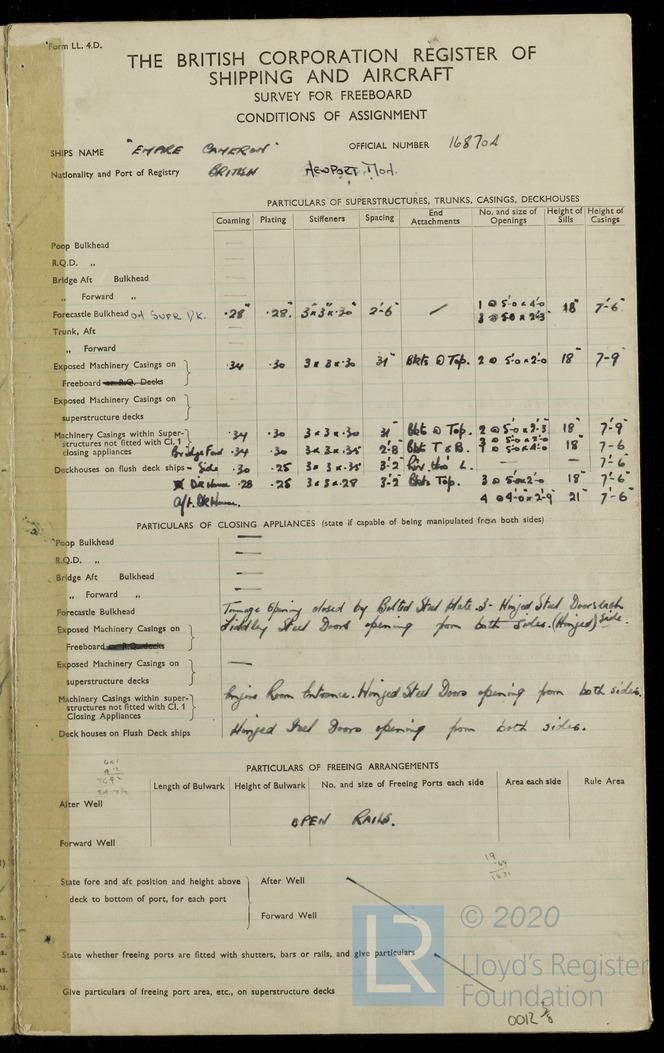 Form LL. 4.D.
THE BRITISH CORPORATION REGISTER OF
SHIPPING AND AIRCRAFT
SURVEY FOR FREEBOARD
CONDITIONS OF ASSIGNMENT
SHIPS NAME "EMPIRE CAMERON" OFFICIAL NUMBER 168704
Nationality and Port of Registry BRITISH NEWPORT. MON.
PARTICULARS OF SUPERSTRUCTURES, TRUNKS, CASINGS, DECKHOUSES
Coaming Plating Stiffeners Spacing End Attachments No. and size of Openings Height of Sills Height of Casings
Poop Bulkhead
R.Q.D. „
Bridge Aft Bulkhead
„ Forward „
Forecastle Bulkhead on SUPR DK. .28" .28". 3"x3"x.30" 2'-6" 1 @ 5'-0 x 4'-0 18" 7'-6"
3 @ 5-0 x 2'-3
Trunk, Aft
„ Forward
Exposed Machinery Casings on .34 .30 3 x 3 x .30 31" Bkts @ Top. 2 @ 5'-0 x 2'-0 18" 7'-9"
Freeboard or R.Q. Decks
Exposed Machinery Casings on
superstructure decks
Machinery Casings within Super- .34 .30 3 x 3 x .30 31" Bkts @ Top. 2 @ 5'-0 x 2'-3 18" 7'-9"
structures not fitted with Cl. 1
closing appliances Bridge Fwd .34 .30 3 x 3 x .35" 2'-8" Bkts T & B. 18" 7-6
Deckhouses on flush deck ships - Side .30 .25 3 x 3 x .35" 3'-2" L. — — 7'-6"
Dk House .28 .25 3 x 3 x .28 3'-2" Bkts Top. 3 @ 5'-0 x 2'-0 18" 7'-6"
Aft. Dk House. 4 @ 4'-0 x 2'-9 21" 7-6"
PARTICULARS OF CLOSING APPLIANCES (state if capable of being manipulated from both sides)
Poop Bulkhead —
R.Q.D. „ —
Bridge Aft Bulkhead —
„ Forward „ —
Forecastle Bulkhead Tonnage Opening closed by Bolted Steel Plate. 3- Hinged Steel Doors each
Exposed Machinery Casings on Fiddley Steel Doors opening from both sides. (Hinged) Side.
Freeboard or R.Q. decks
Exposed Machinery Casings on —
superstructure decks
Machinery Casings within super- Engine Room Entrance. Hinged Steel Doors opening from both sides.
structures not fitted with Cl. 1
Closing Appliances
Deck houses on Flush Deck ships Hinged Steel Doors opening from both sides.
PARTICULARS OF FREEING ARRANGEMENTS
Length of Bulwark Height of Bulwark No. and size of Freeing Ports each side Area each side Rule Area
After Well
OPEN RAILS.
Forward Well
State fore and aft position and height above After Well
deck to bottom of port, for each port
Forward Well
State whether freeing ports are fitted with shutters, bars or rails, and give particulars
Give particulars of freeing port area, etc., on superstructure decks
LR
© 2020
Lloyd's Register
Foundation
0012